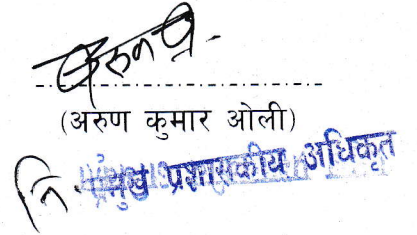 (अरुण कुमार ओली)
नि. प्रमुख प्रशासकीय अधिकृत